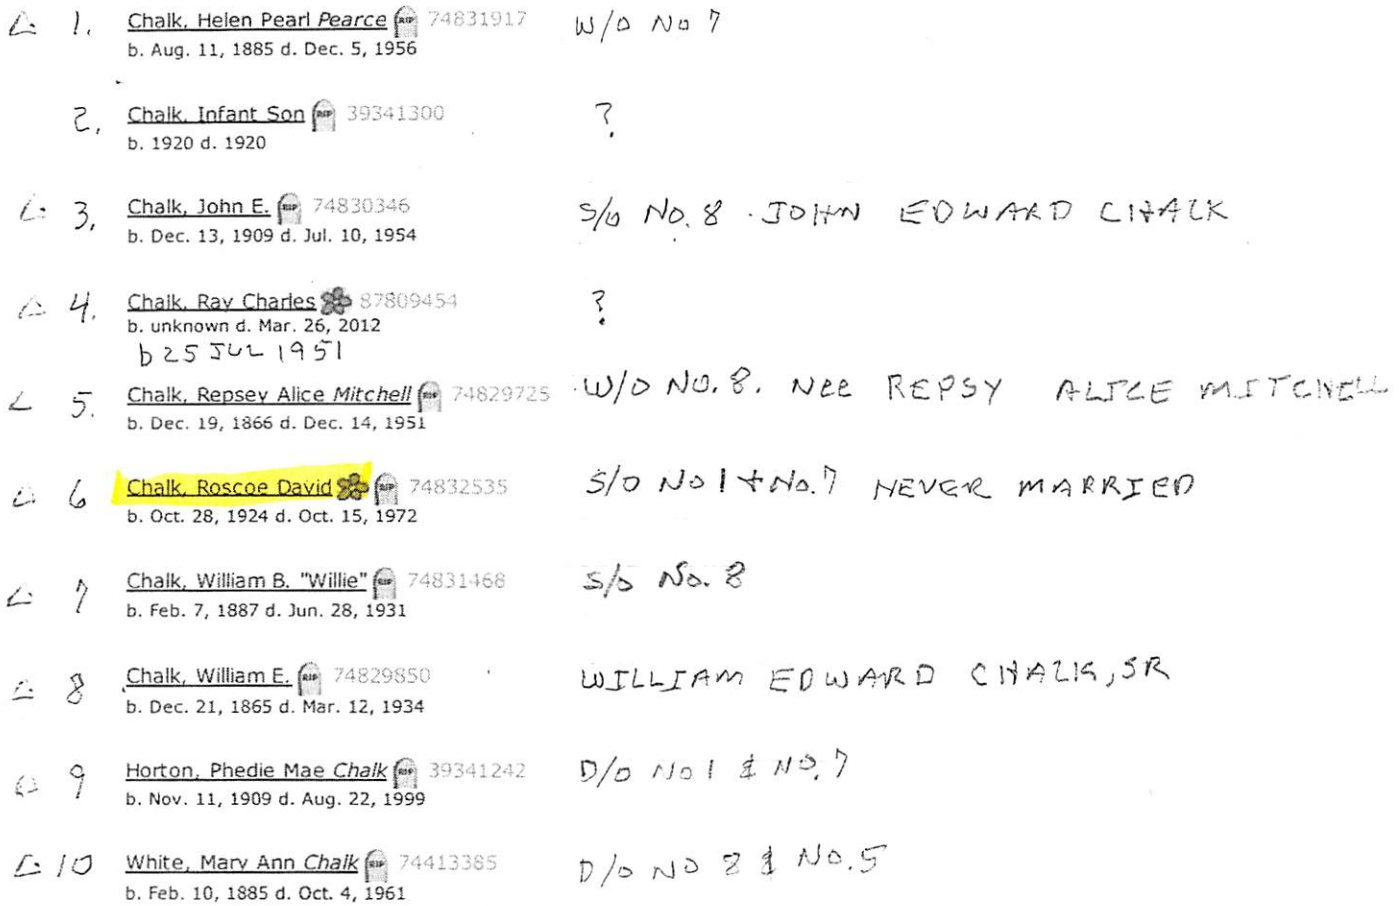 1. Chalk, Helen Pearl Pearce RIP 74831917 W/O No 7
b. Aug. 11, 1885 d. Dec. 5, 1956
2. Chalk, Infant Son RIP 39341300 ?
b. 1920 d. 1920
3. Chalk, John E. RIP 74830346 S/O No. 8 . JOHN EDWARD CHALK
b. Dec. 13, 1909 d. Jul. 10, 1954
4. Chalk, Ray Charles 87809454 ?
b. unknown d. Mar. 26, 2012
b 25 JUL 1951
5. Chalk, Repsey Alice Mitchell RIP 74829725 W/O NO. 8. Nee REPSY ALICE MITCHELL
b. Dec. 19, 1866 d. Dec. 14, 1951
6 Chalk, Roscoe David RIP 74832535 S/O No 1 + No. 7 NEVER MARRIED
b. Oct. 28, 1924 d. Oct. 15, 1972
7 Chalk, William B. "Willie" RIP 74831468 S/O No. 8
b. Feb. 7, 1887 d. Jun. 28, 1931
8 Chalk, William E. RIP 74829850 WILLIAM EDWARD CHALK, SR
b. Dec. 21, 1865 d. Mar. 12, 1934
9 Horton, Phedie Mae Chalk RIP 39341242 D/O No 1 & No. 7
b. Nov. 11, 1909 d. Aug. 22, 1999
10 White, Mary Ann Chalk RIP 74413385 D/O NO 8 & NO. 5
b. Feb. 10, 1885 d. Oct. 4, 1961